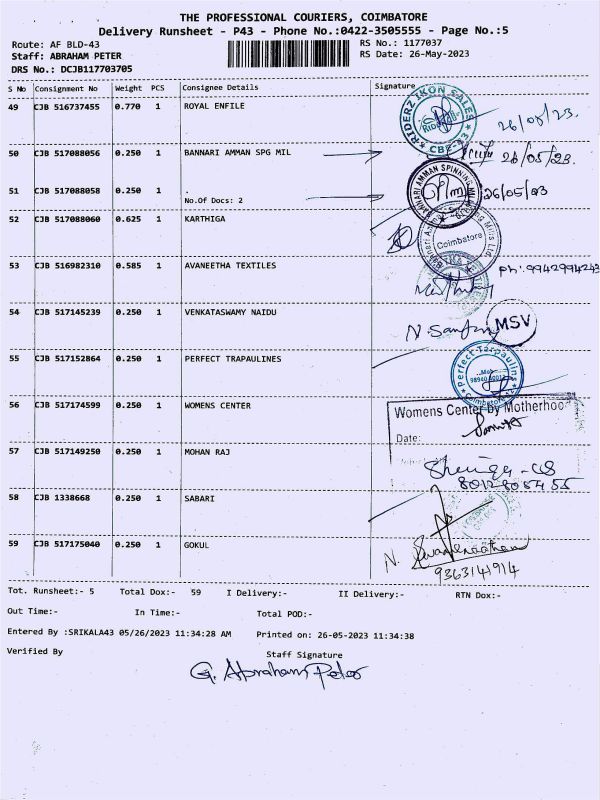 THE PROFESSIONAL COURIERS, COIMBATORE
Delivery Runsheet - P43 - Phone No.:0422-3505555 - Page No.:5
Route: AF BLD-43 RS No.: 1177037
Staff: ABRAHAM PETER RS Date: 26-May-2023
DRS No.: DCJB117703705
S No Consignment No Weight PCS Consignee Details Signature
49 CJB 516737455 0.770 1 ROYAL ENFILE RIDERZ IKON SALES CBE 26/05/23.
50 CJB 517088056 0.250 1 BANNARI AMMAN SPG MIL 26/05/23.
51 CJB 517088058 0.250 1 . 26/05/23
No.Of Docs: 2 BANNARI AMMAN SPINNING
52 CJB 517088060 0.625 1 KARTHIGA Coimbatore
53 CJB 516982310 0.585 1 AVANEETHA TEXTILES Ph: 9942994243
54 CJB 517145239 0.250 1 VENKATASWAMY NAIDU MSV
55 CJB 517152864 0.250 1 PERFECT TRAPAULINES Perfect Tarpaulins Coimbatore
56 CJB 517174599 0.250 1 WOMENS CENTER Womens Center by Motherhood
Date:
57 CJB 517149250 0.250 1 MOHAN RAJ
58 CJB 1338668 0.250 1 SABARI
59 CJB 517175040 0.250 1 GOKUL
9363141914
Tot. Runsheet:- 5 Total Dox:- 59 I Delivery:- II Delivery:- RTN Dox:-
Out Time:- In Time:- Total POD:-
Entered By :SRIKALA43 05/26/2023 11:34:28 AM Printed on: 26-05-2023 11:34:38
Verified By Staff Signature
G. Abraham Peter